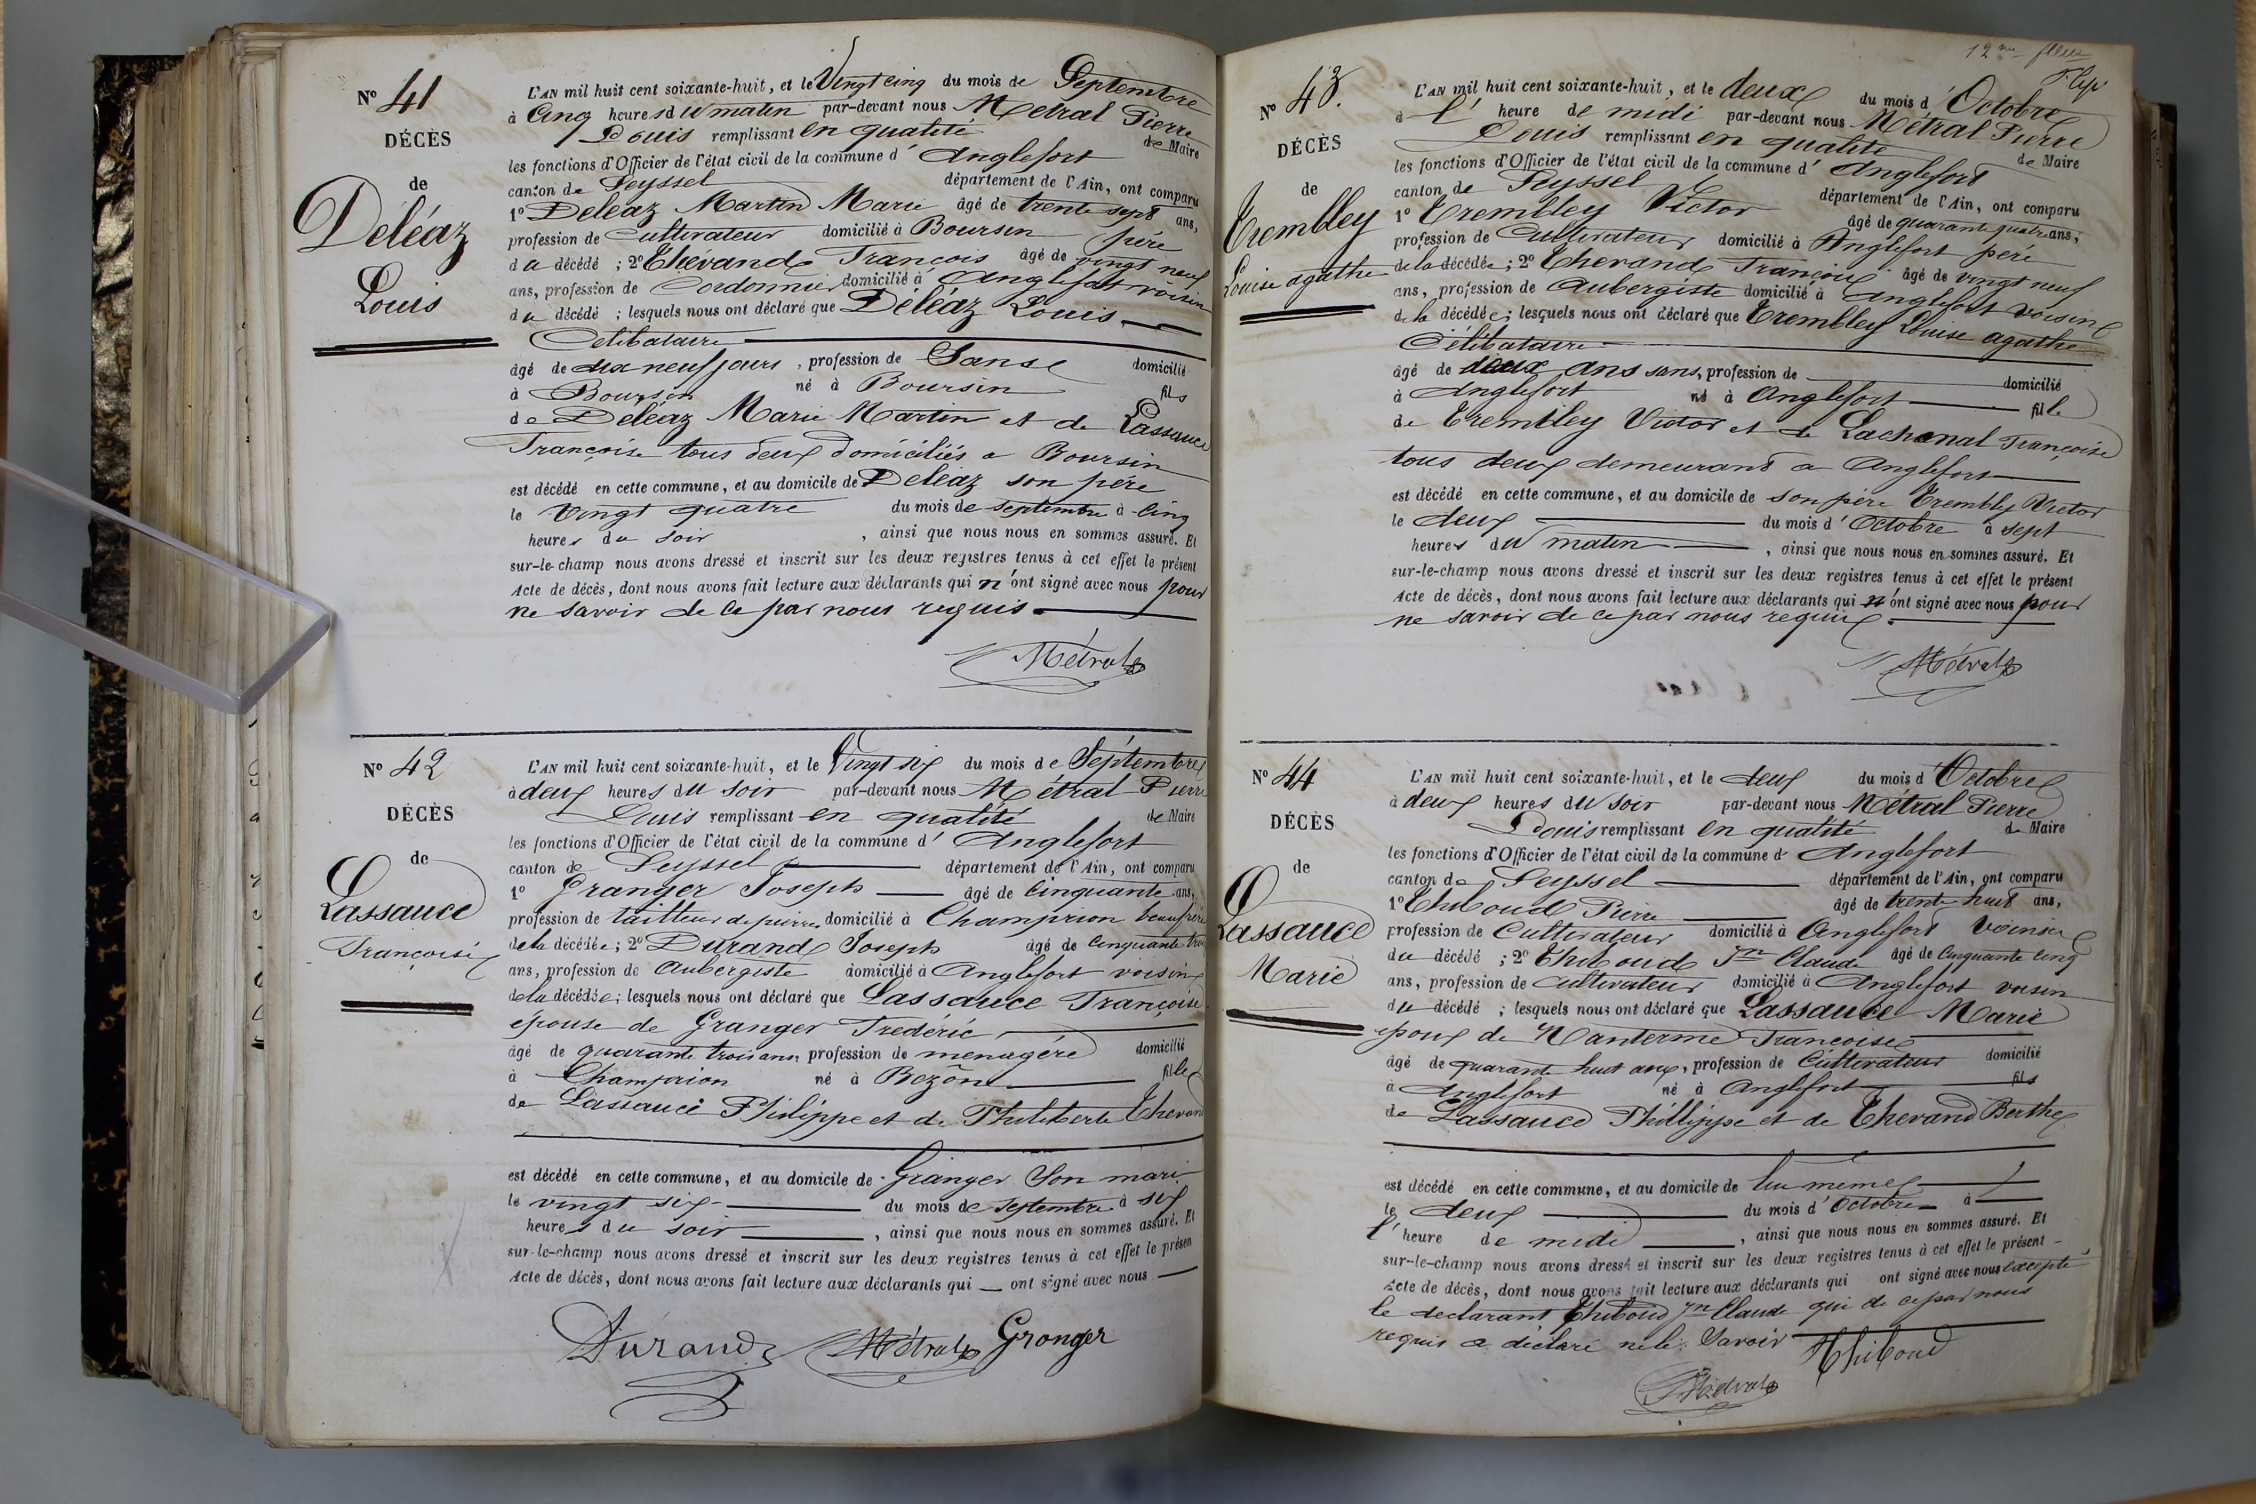 Nº 41
DÉCÈS
de
Déléaz
Louis
L'AN mil huit cent soixante-huit, et le Vingt cinq du mois de Septembre
à Cinq heures du matin par-devant nous Métral Pierre
Louis remplissant en qualité de Maire
les fonctions d'Officier de l'état civil de la commune d' Anglefort
canton de Seyssel département de l'Ain, ont comparu
1º Déléaz Martin Marie âgé de trente sept ans,
profession de Cultivateur domicilié à Boursin père
du décédé ; 2º Thevand François âgé de vingt neuf
ans, profession de Cordonnier domicilié à Anglefort voisin
du décédé ; lesquels nous ont déclaré que Déléaz Louis
Célibataire
âgé de dix neuf jours, profession de Sans domicilié
à Boursin né à Boursin fils
de Déléaz Marie Martin et de Lassauce
Françoise tous deux domiciliés a Boursin
est décédé en cette commune, et au domicile de Déléaz son père
le vingt quatre du mois de septembre à cinq
heures du soir, ainsi que nous nous en sommes assuré. Et
sur-le-champ nous avons dressé et inscrit sur les deux registres tenus à cet effet le présent
Acte de décès, dont nous avons fait lecture aux déclarants qui n'ont signé avec nous pour
ne savoir de ce par nous requis.
Métral
Nº 42
DÉCÈS
de
Lassauce
Françoise
L'AN mil huit cent soixante-huit, et le Vingt six du mois de Septembre
à deux heures du soir par-devant nous Métral Pierre
Louis remplissant en qualité de Maire
les fonctions d'Officier de l'état civil de la commune d' Anglefort
canton de Seyssel département de l'Ain, ont comparu
1º Granger Joseph âgé de Cinquante ans,
profession de tailleur de pierre domicilié à Champrion beaufrère
de la décédée ; 2º Durand Joseph âgé de Cinquante trois
ans, profession de aubergiste domicilié à Anglefort voisin
de la décédée ; lesquels nous ont déclaré que Lassauce Françoise
épouse de Granger Frédéric
âgé de quarante trois ans, profession de ménagère domicilié
à Champrion né à Bezõn fille
de Lassauce Philippe et de Philiberte Thevand
est décédé en cette commune, et au domicile de Granger son mari
le vingt six du mois de septembre à six
heures du soir, ainsi que nous nous en sommes assuré. Et
sur-le-champ nous avons dressé et inscrit sur les deux registres tenus à cet effet le présen
Acte de décès, dont nous avons fait lecture aux déclarants qui ont signé avec nous
Durand Métral Gronger
Nº 43.
DÉCÈS
de
Trembley
Louise agathe
L'AN mil huit cent soixante-huit, et le deux du mois d'Octobre
à l' heure de midi par-devant nous Métral Pierre
Louis remplissant en qualité de Maire
les fonctions d'Officier de l'état civil de la commune d' Anglefort
canton de Seyssel département de l'Ain, ont comparu
1º Trembley Victor âgé de quarante quatre ans,
profession de Cultivateur domicilié à Anglefort père
de la décédée ; 2º Thevand François âgé de vingt neuf
ans, profession de Aubergiste domicilié à Anglefort voisin
de la décédée ; lesquels nous ont déclaré que Trembley Louise agathe
Célibataire
âgé de deux ans sans, profession de domicilié
à Anglefort né à Anglefort fille
de Trembley Victor et de Lachenal Françoise
tous deux demeurant a Anglefort
est décédé en cette commune, et au domicile de son père Trembley Victor
le deux du mois d'Octobre à sept
heures du matin, ainsi que nous nous en sommes assuré. Et
sur-le-champ nous avons dressé et inscrit sur les deux registres tenus à cet effet le présent
Acte de décès, dont nous avons fait lecture aux déclarants qui n'ont signé avec nous pour
ne savoir de ce par nous requis.
Métral
Nº 44
DÉCÈS
de
Lassauce
Marie
L'AN mil huit cent soixante-huit, et le deux du mois d'Octobre
à deux heures du soir par-devant nous Métral Pierre
Louis remplissant en qualité de Maire
les fonctions d'Officier de l'état civil de la commune d' Anglefort
canton de Seyssel département de l'Ain, ont comparu
1º Thiboud Pierre âgé de trente huit ans,
profession de Cultivateur domicilié à Anglefort voisin
du décédé ; 2º Thiboud Jn Claude âgé de Cinquante cinq
ans, profession de cultivateur domicilié à Anglefort voisin
du décédé ; lesquels nous ont déclaré que Lassauce Marie
époux de Nanterme Françoise
âgé de quarante huit ans, profession de Cultivateur domicilié
à Anglefort né à Anglefort fils
de Lassauce Phillippe et de Thevand Berthe
est décédé en cette commune, et au domicile de lui même
le deux du mois d'Octobre à
l'heure de midi, ainsi que nous nous en sommes assuré. Et
sur-le-champ nous avons dressé et inscrit sur les deux registres tenus à cet effet le présent
Acte de décès, dont nous avons fait lecture aux déclarants qui ont signé avec nous excepté
le declarant Thiboud Jn Claude qui de ce par nous
requis a déclaré ne le Savoir
Thiboud
Métral